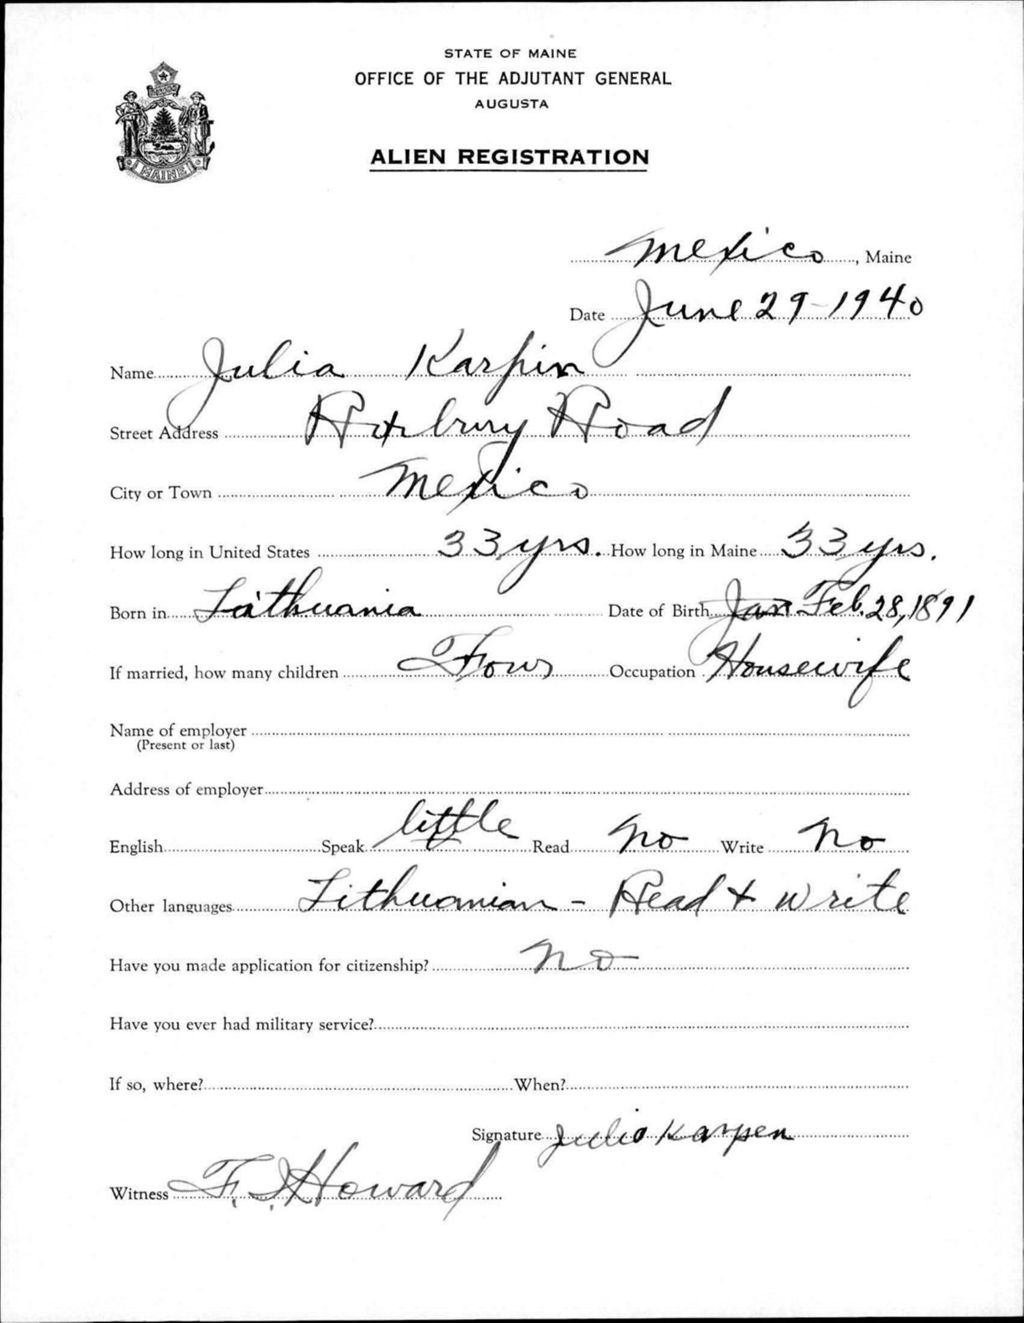 STATE OF MAINE
OFFICE OF THE ADJUTANT GENERAL
AUGUSTA
ALIEN REGISTRATION
MAINE
Mexico, Maine
Date June 29-1940
Name Julia Karpin
Street Address Roxbury Road
City or Town Mexico
How long in United States 33 yrs. How long in Maine 33 yrs.
Born in Lithuania Date of Birth Jan Feb. 28, 1891
If married, how many children Four Occupation Housewife
Name of employer
(Present or last)
Address of employer
English Speak little Read No Write No
Other languages Lithuanian - Read + write
Have you made application for citizenship? No
Have you ever had military service?
If so, where? When?
Signature Julia Karpen
Witness F. J. Howard